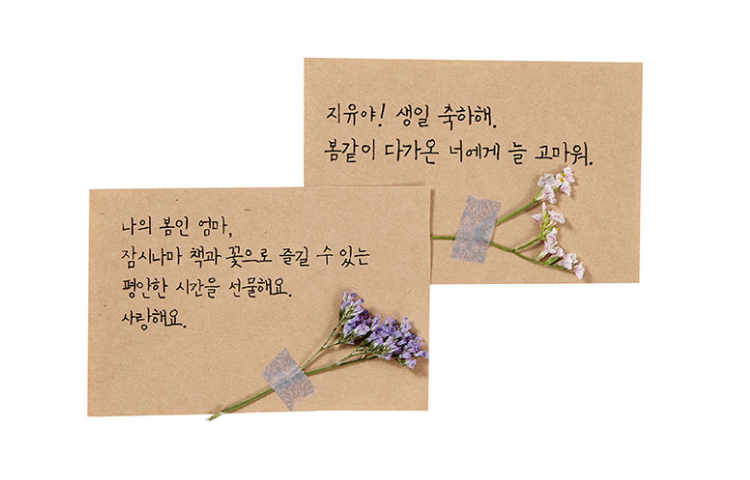 지유야! 생일 축하해.
봄같이 다가온 너에게 늘 고마워.
나의 봄인 엄마,
잠시나마 책과 꽃으로 즐길 수 있는
평안한 시간을 선물해요.
사랑해요.